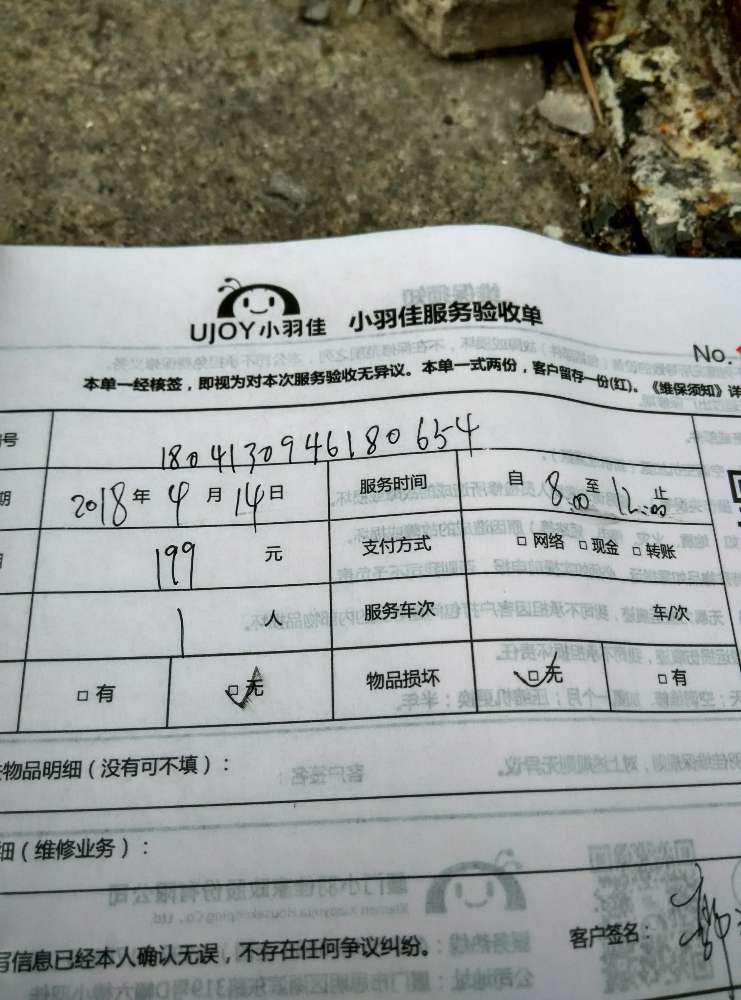 UJOY小羽佳 小羽佳服务验收单
No.
本单一经核签，即视为对本次服务验收无异议。本单一式两份，客户留存一份(红)。《维保须知》详
号 1804130946180654
期 2018年4月14日 服务时间 自8:00至12:00止
199元 支付方式 □网络 □现金 □转账
1人 服务车次 车/次
□有 □无 物品损坏 □无 □有
物品明细（没有可不填）：
细（维修业务）：
写信息已经本人确认无误，不存在任何争议纠纷。 客户签名：